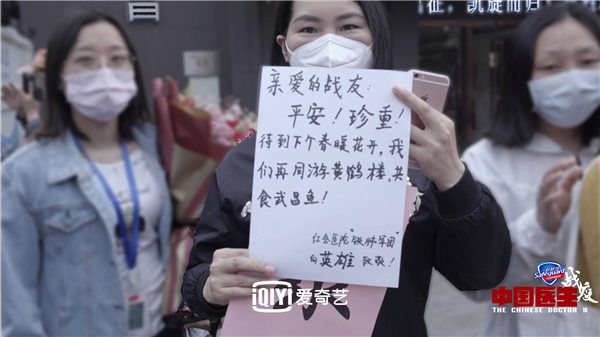 征，凯旋而归
亲爱的战友：
平安！珍重！
待到下个春暖花开，我
们再同游黄鹤楼，共
食武昌鱼！
红会医院"铁军团"
向英雄致敬！
iQIYI 爱奇艺
Safeguard
中国医生
战疫
THE CHINESE DOCTOR